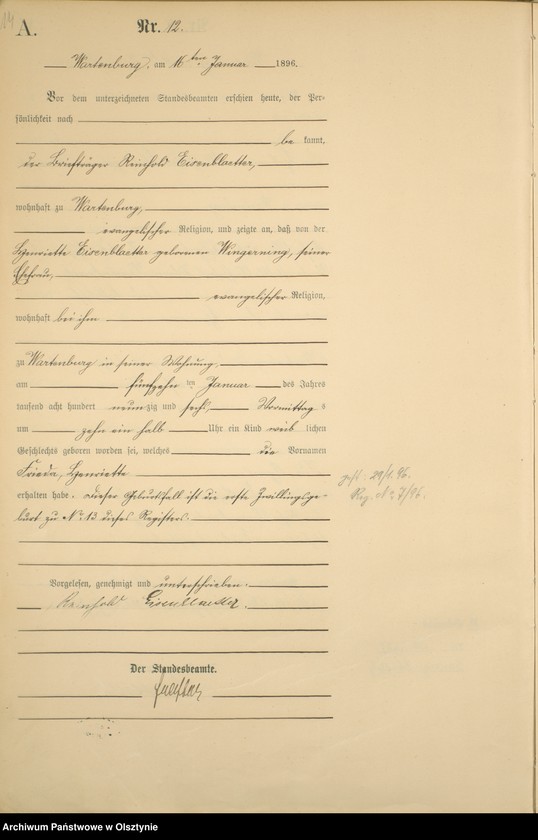 A.
Nr. 12.
Wartenburg, am 16ten Januar 1896.
Vor dem unterzeichneten Standesbeamten erschien heute, der Per-
sönlichkeit nach
be kannt,
der Briefträger Reinhold Eisenblaetter,
wohnhaft zu Wartenburg,
evangelischer Religion, und zeigte an, daß von der
Henriette Eisenblaetter geborenen Wingerning, seiner
Ehefrau,
evangelischer Religion,
wohnhaft bei ihm
zu Wartenburg in seiner Wohnung,
am fünfzehn ten Januar des Jahres
tausend acht hundert neun zig und sechs, Vormittag s
um zehn ein halb Uhr ein Kind weib lichen
Geschlechts geboren worden sei, welches die Vornamen
Frieda, Henriette
erhalten habe. Dieser Geburtsfall ist die erste Zwillingsge-
burt zu No 13 dieses Registers.
29/1. 96.
Reg. No 7/96.
Vorgelesen, genehmigt und unterschrieben.
Reinhold Eisenblaetter.
Der Standesbeamte.
Archiwum Państwowe w Olsztynie